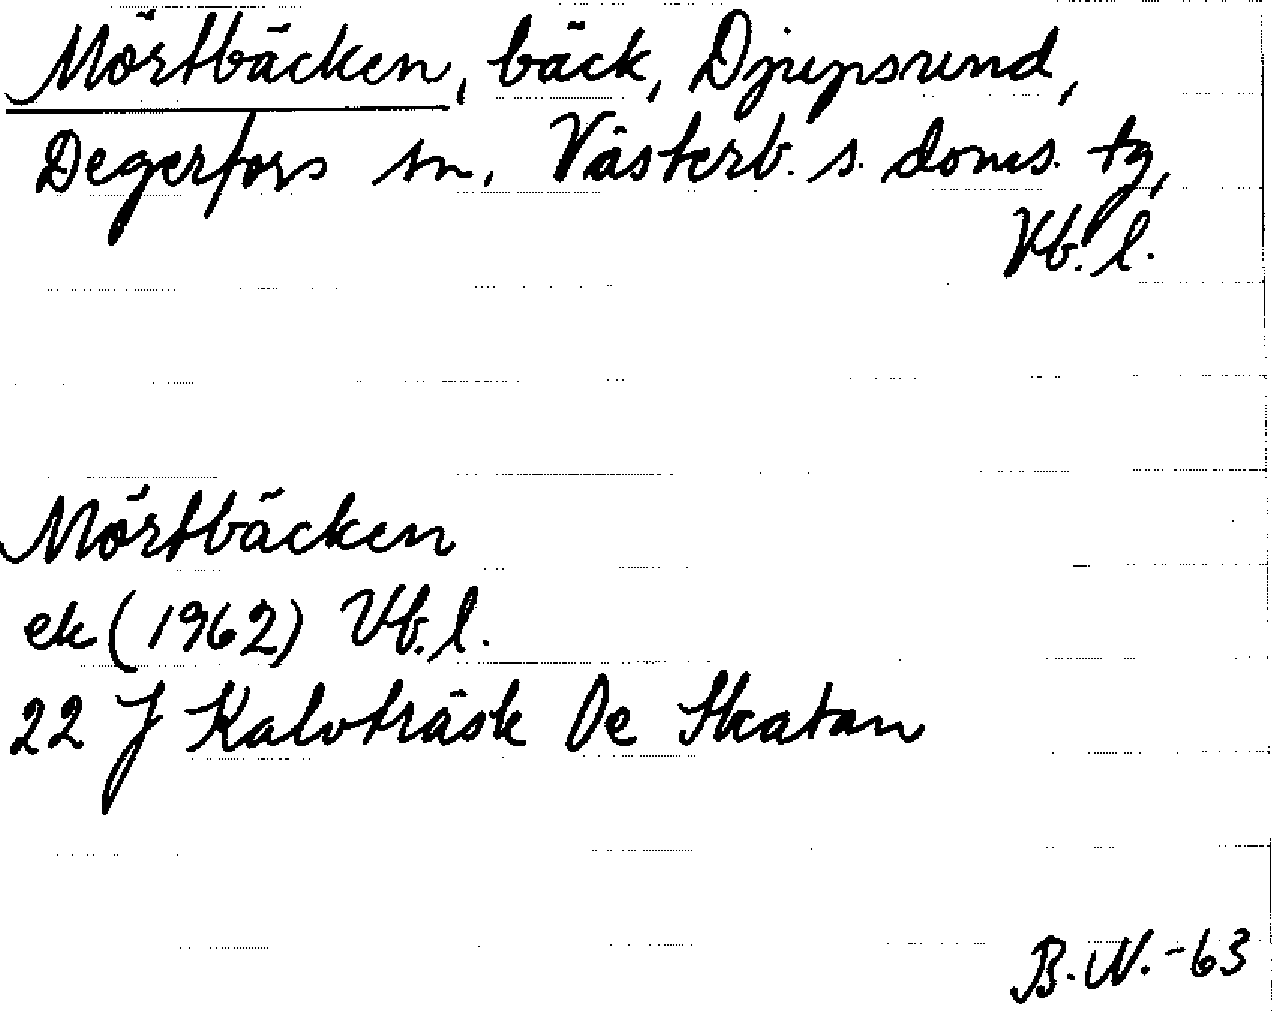 Mörtbäcken, bäck, Djupsund,
Degerfors sn. Västerb. s. doms. tg,
Vb. l.
Mörtbäcken
ek (1962) Vb. l.
22 J Kalvträsk De Skatan
B. N. -63